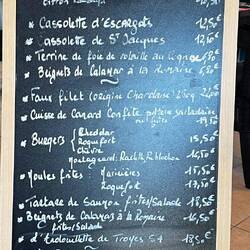 * Cassolette d'Escargots 12,50€
* Cassolette de St Jacques 12,50€
* Terrine de foie de volaille au Cognac
* Beignets de Calamar à la Romaine
* Faux filet (origine Charolaise)
* Cuisse de Canard Confite
* Burgers / Cheddar 15,50€
Roquefort
Chèvre
Montagnard: Raclette, Reblochon 16,50€
* Moules frites / Marinières 15,50€
Roquefort 17,50€
* Tartare de Saumon frites/Salade 18,50€
* Beignets de Calamar à la Romaine 16,50€
frites/Salade
* d'Andouillette de Troyes 5A 18,50€